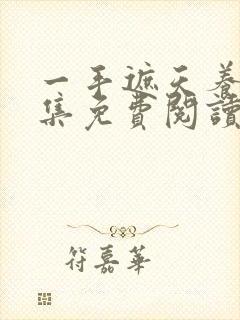 一手遮天養
集免費閱讀
符嘉華